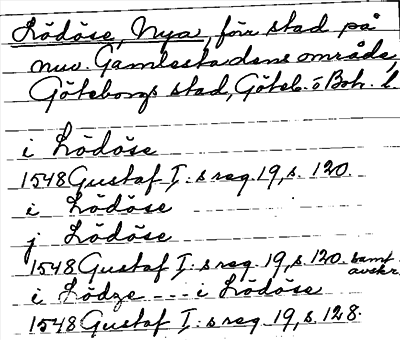 Lödöse, Nya, förr stad på
nuv. Gamlestadens område,
Göteborgs stad, Göteb. o Boh. l.
i Lödöse
1548 Gustaf I:s reg. 19, s. 120.
i Lödöse
j Lödöse
1548 Gustaf I:s reg. 19, s. 120. samt avskr.
i Lödze --- i Lödöse
1548 Gustaf I:s reg. 19, s. 128.